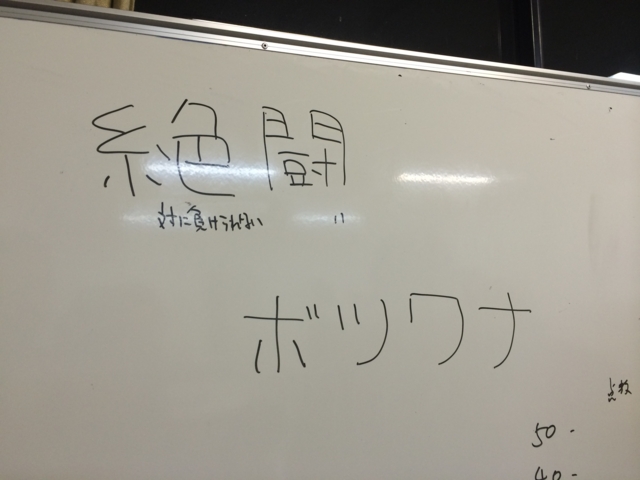 絶闘
対に負けられない 〃
ボツワナ
点数
50 -
40 -